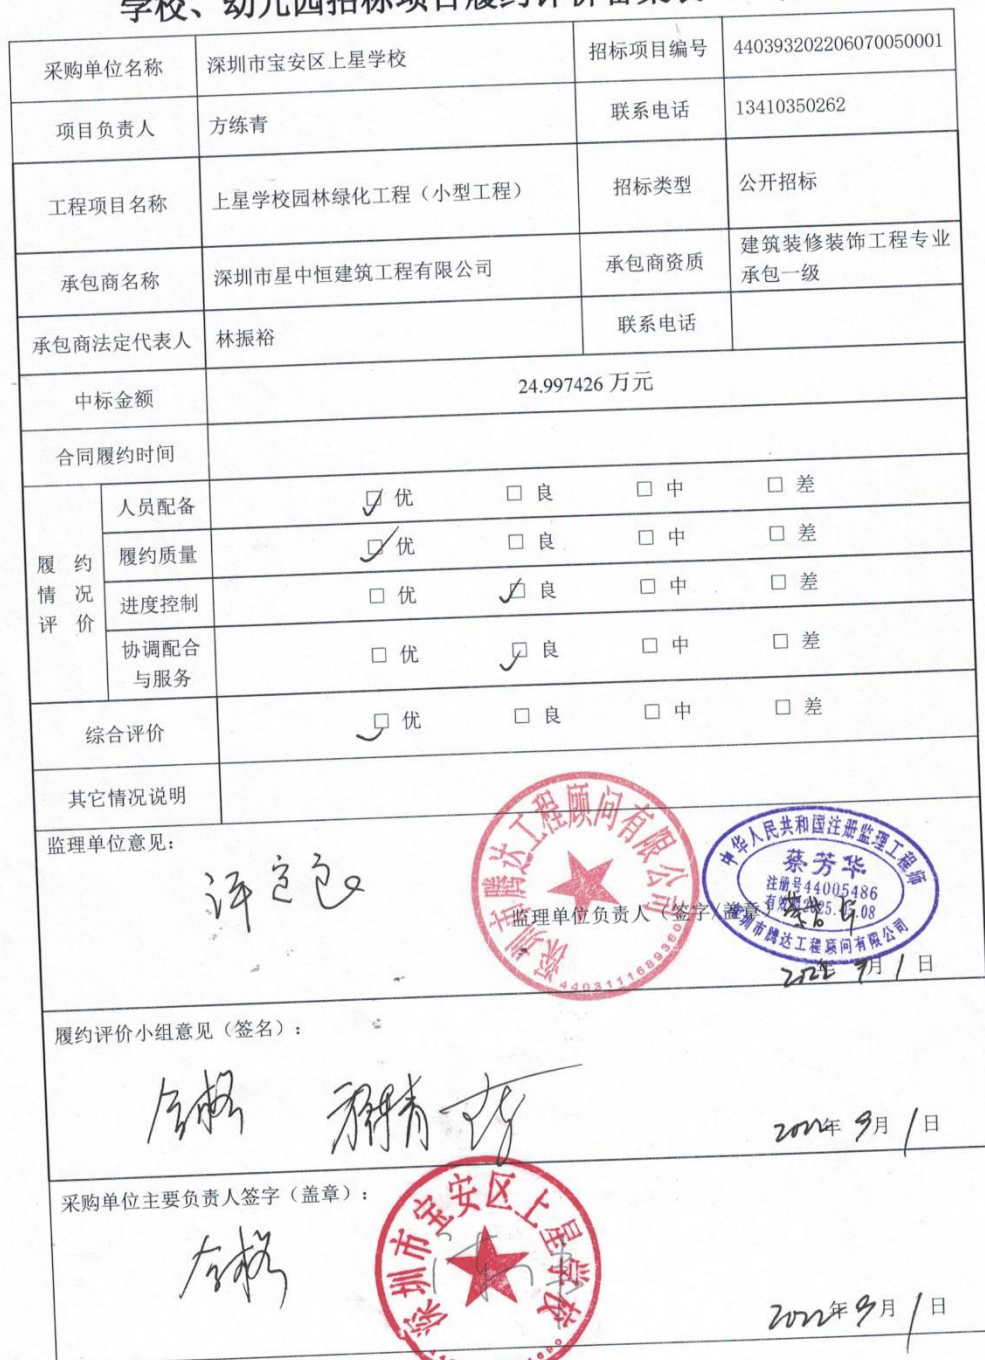 学校、幼儿园招标项目履约评价备案表
采购单位名称 深圳市宝安区上星学校 招标项目编号 440393202206070050001
项目负责人 方练青 联系电话 13410350262
工程项目名称 上星学校园林绿化工程（小型工程） 招标类型 公开招标
承包商名称 深圳市星中恒建筑工程有限公司 承包商资质 建筑装修装饰工程专业
承包一级
承包商法定代表人 林振裕 联系电话
中标金额 24.997426 万元
合同履约时间
履约
情况
评价
人员配备 ☑ 优 □ 良 □ 中 □ 差
履约质量 ☑ 优 □ 良 □ 中 □ 差
进度控制 □ 优 ☑ 良 □ 中 □ 差
协调配合
与服务 □ 优 ☑ 良 □ 中 □ 差
综合评价 ☑ 优 □ 良 □ 中 □ 差
其它情况说明
监理单位意见：
深圳市腾达工程顾问有限公司
4403111689360
中华人民共和国注册监理工程师
蔡芳华
注册号44005486
深圳市腾达工程顾问有限公司
监理单位负责人（签字/盖章）
2022年 9月 1日
履约评价小组意见（签名）：
合格
2022年 9月 1日
采购单位主要负责人签字（盖章）：
合格
深圳市宝安区上星学校
2022年 9月 1日